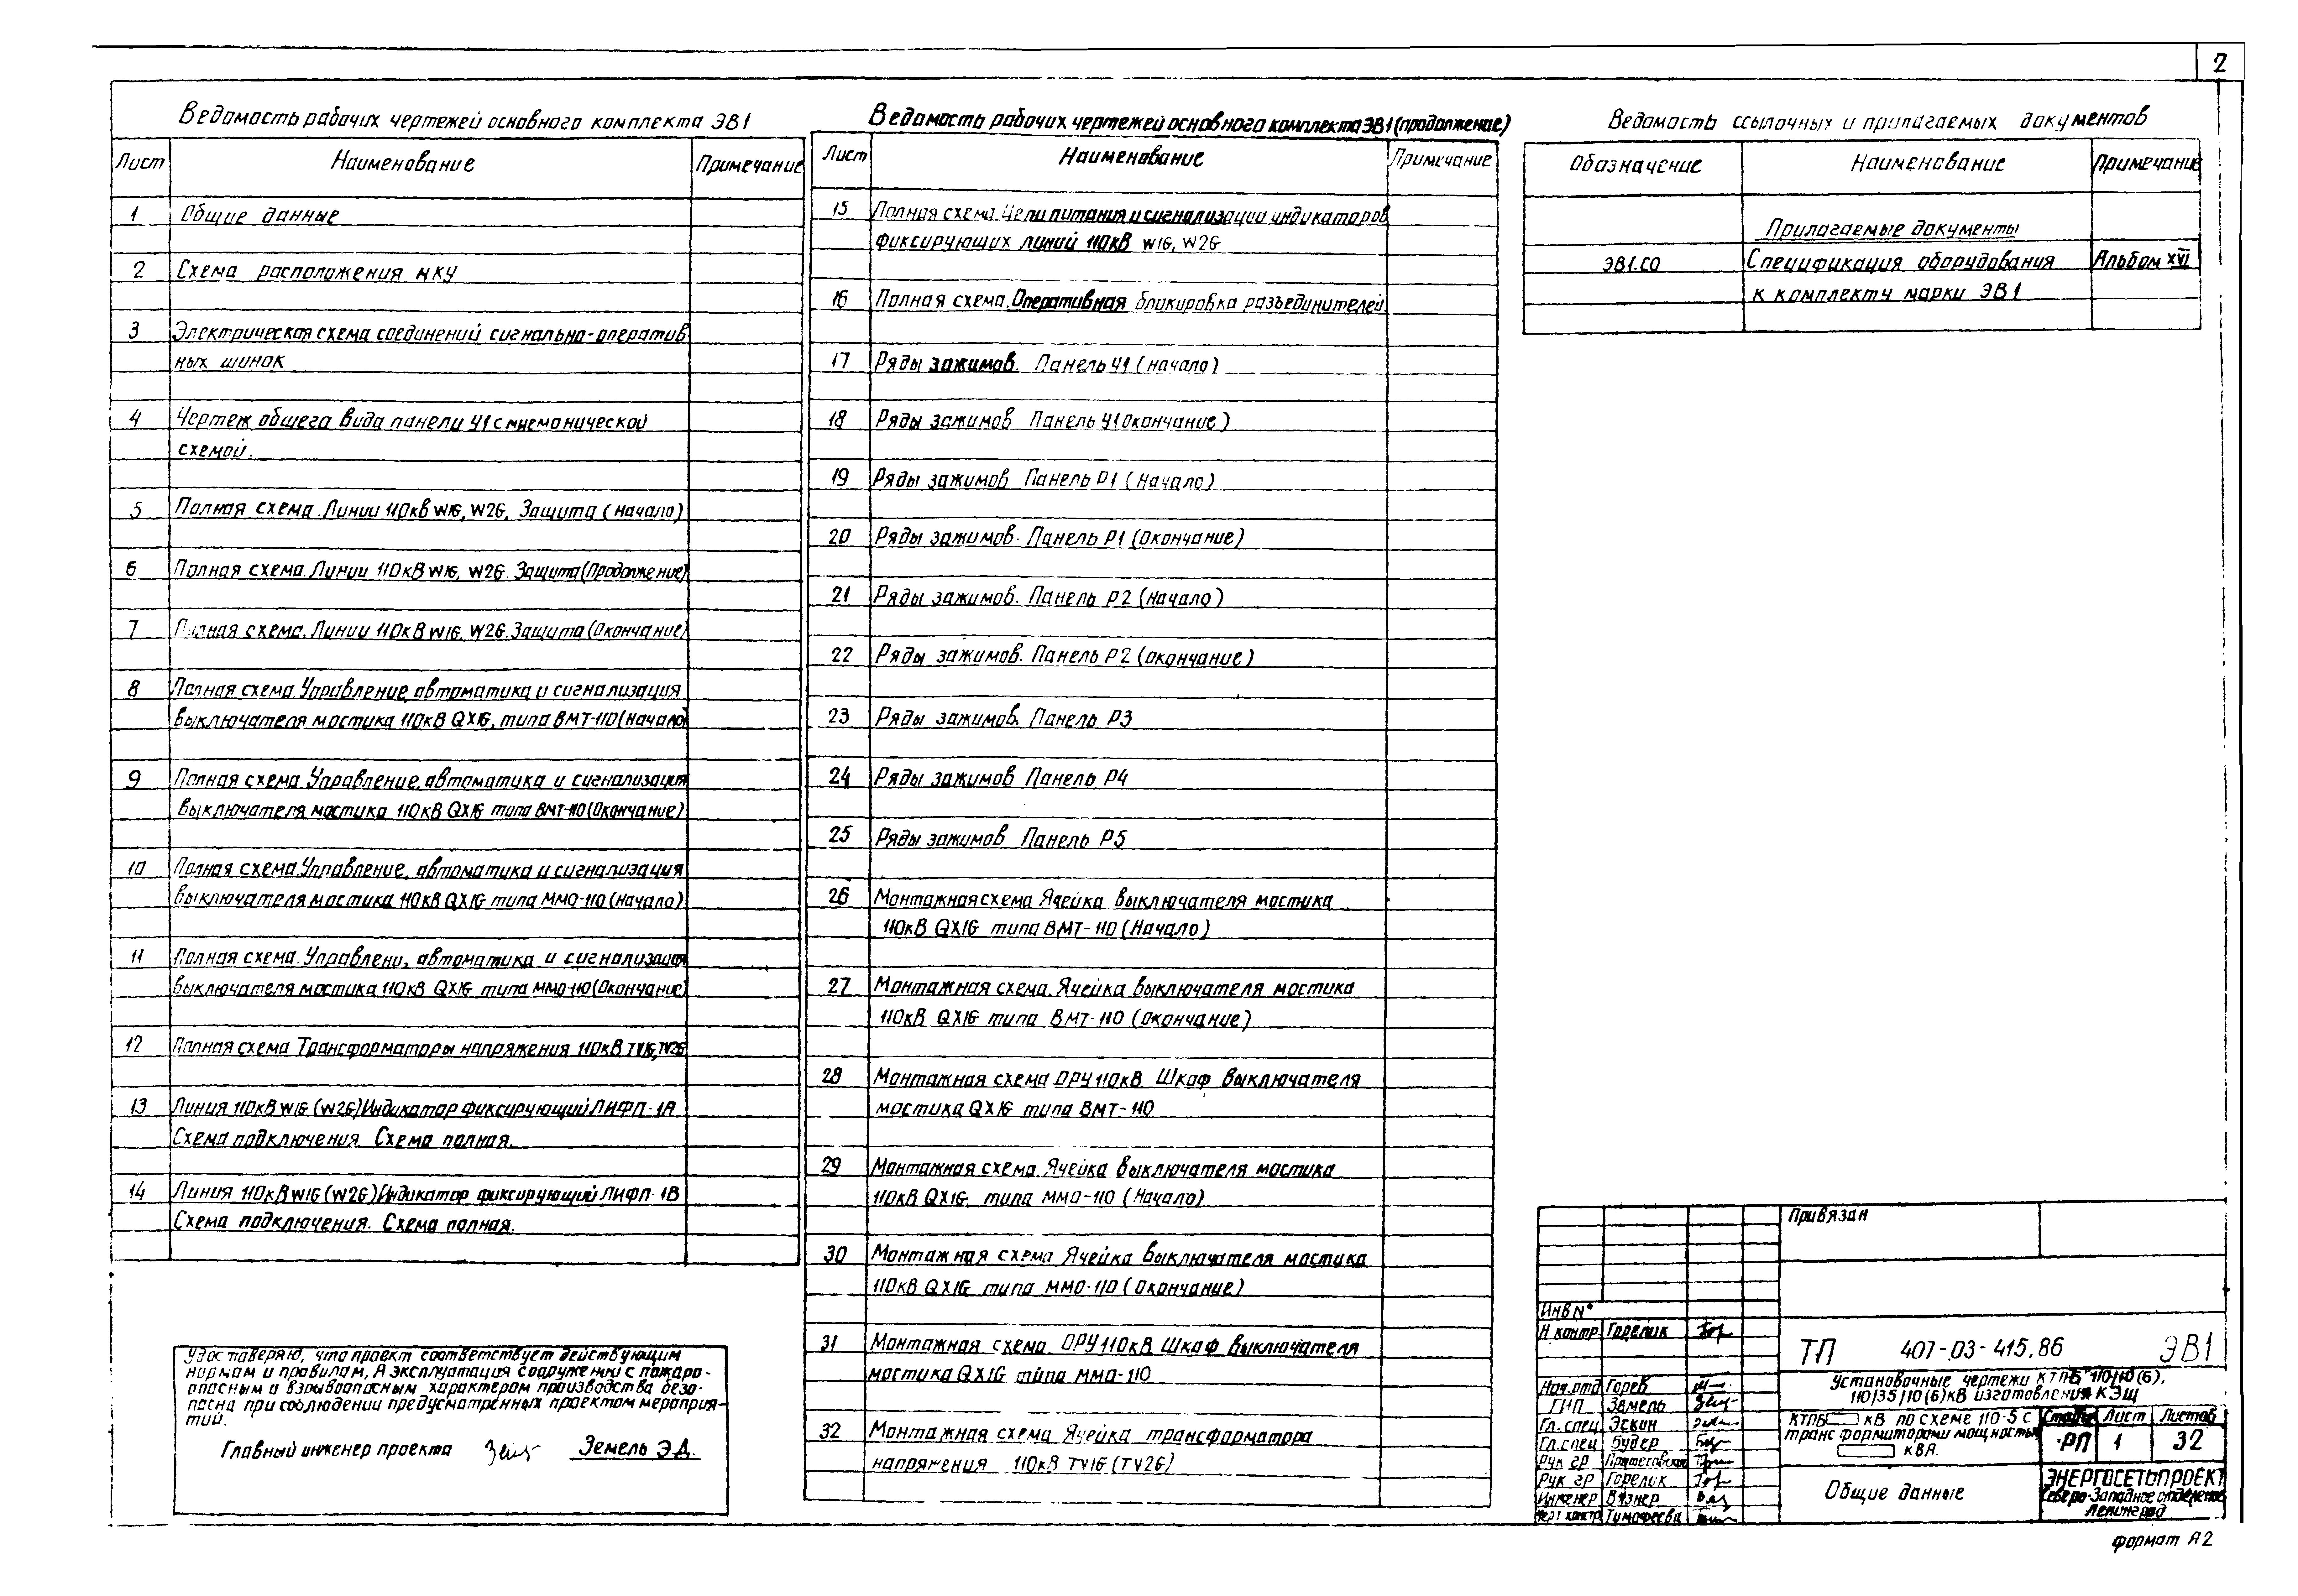 2
Ведомость рабочих чертежей основного комплекта ЭВ1
Лист Наименование Примечание
1 Общие данные
2 Схема расположения НКУ
3 Электрическая схема соединений сигнально-оператив
ных шинок
4 Чертеж общего вида панели У1 с мнемонической
схемой.
5 Полная схема. Линии 110кВ W1G, W2G. Защита (начало)
6 Полная схема. Линии 110кВ W1G, W2G. Защита (Продолжение)
7 Полная схема. Линии 110кВ W1G, W2G. Защита (Окончание)
8 Полная схема. Управление, автоматика и сигнализация
выключателя мостика 110кВ QX1G, типа ВМТ-110 (Начало)
9 Полная схема. Управление, автоматика и сигнализация
выключателя мостика 110кВ QX1G типа ВМТ-110 (Окончание)
10 Полная схема. Управление, автоматика и сигнализация
выключателя мостика 110кВ QX1G типа ММО-110 (Начало)
11 Полная схема. Управлени, автоматика и сигнализация
выключателя мостика 110кВ QX1G типа ММО-110 (Окончание)
12 Полная схема Трансформаторы напряжения 110кВ TV1G, TV2G
13 Линия 110кВ W1G (W2G) Индикатор фиксирующий ЛИФП-1А
Схема подключения Схема полная.
14 Линия 110кВ W1G (W2G) Индикатор фиксирующий ЛИФП-1В
Схема подключения. Схема полная.
Удостоверяю, что проект соответствует действующим
нормам и правилам, А эксплуатация сооружений с пожаро-
опасным и взрывоопасным характером производства безо-
пасна при соблюдении предусмотренных проектом мероприя-
тий.
Главный инженер проекта Земель Э.Д.
Ведомость рабочих чертежей основного комплекта ЭВ1 (продолжение)
Лист Наименование Примечание
15 Полная схема. Цепи питания и сигнализации индикаторов
фиксирующих линий 110кВ W1G, W2G
16 Полная схема. Оперативная блокировка разъединителей
17 Ряды зажимов. Панель У1 (начало)
18 Ряды зажимов Панель У1 Окончание)
19 Ряды зажимов Панель Р1 (Начало)
20 Ряды зажимов. Панель Р1 (Окончание)
21 Ряды зажимов. Панель Р2 (начало)
22 Ряды зажимов. Панель Р2 (окончание)
23 Ряды зажимов. Панель Р3
24 Ряды зажимов Панель Р4
25 Ряды зажимов Панель Р5
26 Монтажная схема Ячейка выключателя мостика
110кВ QX1G типа ВМТ-110 (Начало)
27 Монтажная схема. Ячейка выключателя мостика
110кВ QX1G типа ВМТ-110 (Окончание)
28 Монтажная схема ОРУ 110кВ Шкаф выключателя
мостика QX1G типа ВМТ-110
29 Монтажная схема. Ячейка выключателя мостика
110кВ QX1G типа ММО-110 (Начало)
30 Монтажная схема Ячейка выключателя мостика
110кВ QX1G типа ММО-110 (Окончание)
31 Монтажная схема ОРУ 110кВ Шкаф выключателя
мостика QX1G типа ММО-110
32 Монтажная схема Ячейка трансформатора
напряжения 110кВ TV1G (TV2G)
Ведомость ссылочных и прилагаемых документов
Обозначение Наименование Примечание
Прилагаемые документы
ЭВ1.СО Спецификация оборудования Альбом XVI
к комплекту марки ЭВ1
Привязан
Инв N°
Н контр. Горелик
Нач.отд Горев
ГИП Земель
Гл. спец Эскин
Гл. спец Будер
Рук гр
Рук гр Горелик
Инженер Вязнер
Черт констр Тимофеева
ТП 407-03-415.86 ЭВ1
Установочные чертежи КТПБ 110/10(6),
110/35/10(6)кВ изготовления КЭЩ
КТПБ кВ по схеме 110-5 с
трансформиторами мощностью
кВА.
Стадия Лист Листов
РП 1 32
Общие данные
ЭНЕРГОСЕТЬПРОЕКТ
Северо-Западное отделение
Ленинград
формат А2